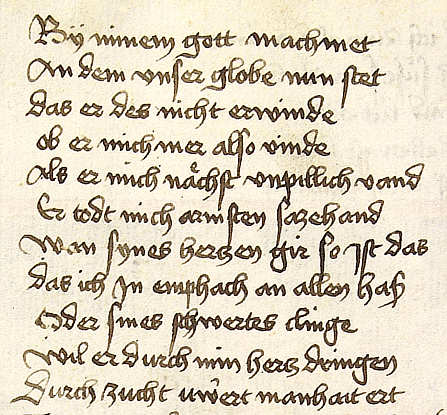 By minem gott machmet
An dem vnser globe nun stet
das er des nicht erwinde
ob er mich mer also vinde
Als er mich nåchst vnpillich vand
Er todt mich armsten sazehand
Wan synes hertzen gir so ist das
das ich In emphach an allen haß
Oder sines schwertes clinge
wil er durch min hertz dringen
Durch zucht uwert manhait ert